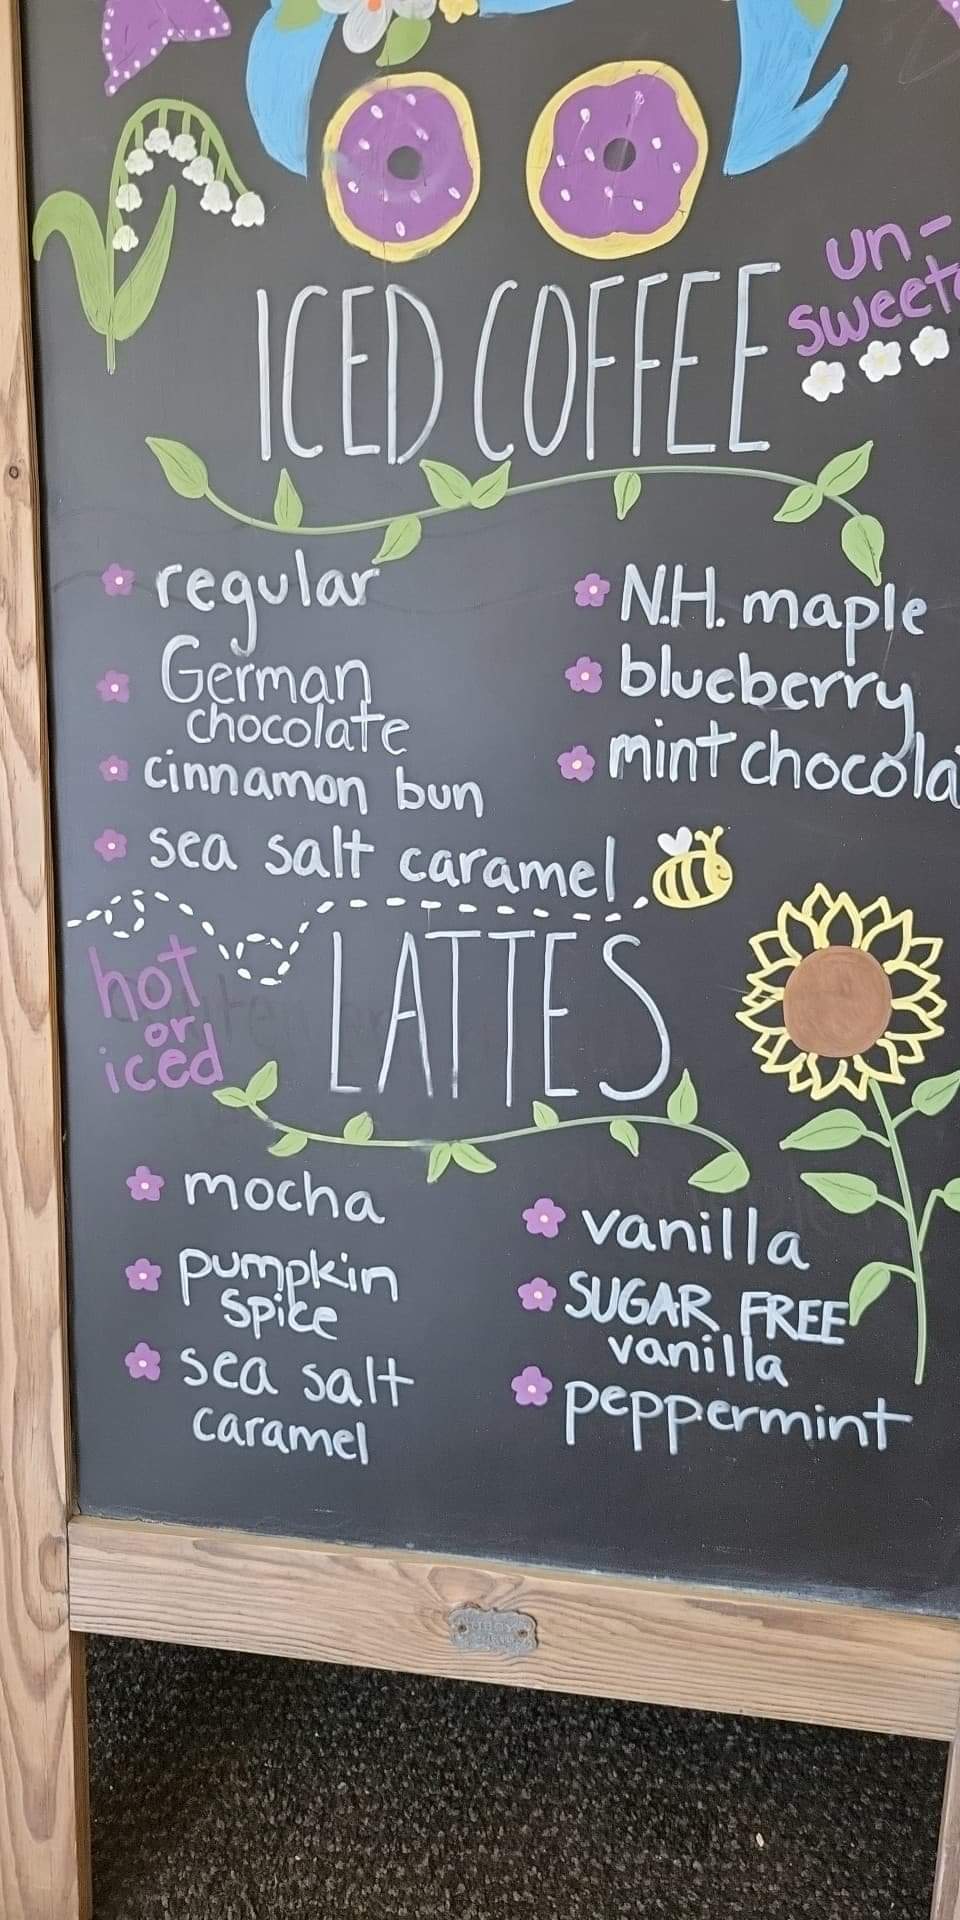 un-
ICED COFFEE
regular
German
chocolate
cinnamon bun
sea salt caramel
N.H. maple
blueberry
mint
hot
or
iced
LATTES
mocha
pumpkin
spice
sea salt
caramel
vanilla
SUGAR FREE
vanilla
peppermint